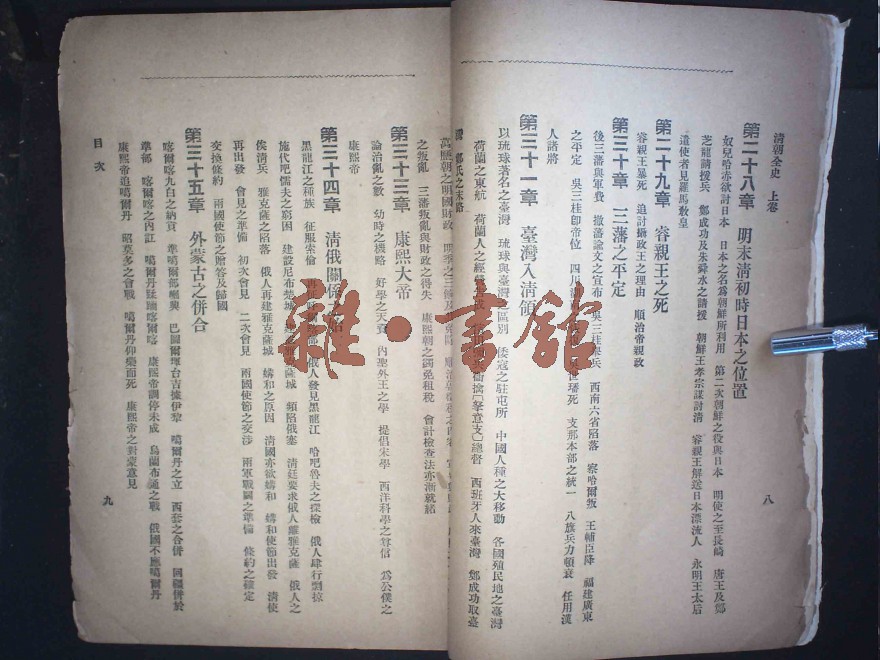 清朝全史 上卷
第二十八章 明末清初時日本之位置
奴兒哈赤欲討日本 日本之名為朝鮮所利用 第二次朝鮮之役與日本 明使之至長崎 唐王及鄭
芝龍請援兵 鄭成功及朱舜水之請援 朝鮮王孝宗謀討清 睿親王解送日本漂流人 永明王太后
遣使者見羅馬教皇
第二十九章 睿親王之死
睿親王暴死 追討攝政王之理由 順治帝親政
第三十章 三藩之平定
後三藩與軍費 撤藩論文之宣布 吳三桂舉兵 西南六省陷落 察哈爾叛 王輔臣降 福建廣東
之平定 吳三桂即帝位 四川 世璠死 支那本部之統一 八旗兵力頓衰 任用漢
人諸將
第三十一章 臺灣入清領
以琉球著名之臺灣 琉球與臺灣之區別 倭寇之駐屯所 中國人種之大移動 各國殖民地之臺灣
荷蘭之東航 荷蘭人之經營 擒〔拏意支〕總督 西班牙人來臺灣 鄭成功取臺
灣 鄭氏之末路
八
萬曆朝之明國財政
之叛亂 三藩叛亂與財政之得失 康熙朝之蠲免租稅 會計檢查法亦漸就緒
第三十三章 康熙大帝
論治亂之數 幼時之機略 好學之天資 內聖外王之學 提倡宋學 西洋科學之尊信 為公僕之
康熙帝
第三十四章 清俄關係之
黑龍江之種族 征服索倫 俄人發見黑龍江 哈吧魯夫之探檢 俄人肆行剽掠
施代吧儒夫之窮困 建設尼布楚城 雅克薩城 頻陷俄塞 清廷要求俄人離雅克薩 俄人之
俟清兵 雅克薩之陷落 俄人再建雅克薩城 媾和之原因 清國亦欲媾和 媾和使節出發 清使
再出發 會見之準備 初次會見 二次會見 兩國使節之交涉 兩軍戰鬬之準備 條約之確定
交換條約 兩國使節之贈答及歸國
第三十五章 外蒙古之併合
喀爾喀九白之納貢 準噶爾部嘣興 巴圖爾琿台吉據伊犂 噶爾丹之立 西套之合併 回疆併於
準部 喀爾喀之內訌 噶爾丹蹂躪喀爾喀 康熙帝調停未成 烏蘭布通之戰 俄國不應噶爾丹
康熙帝追噶爾丹 昭莫多之會戰 噶爾丹仰藥而死 康熙帝之對蒙意見
目次
九
雜·書館